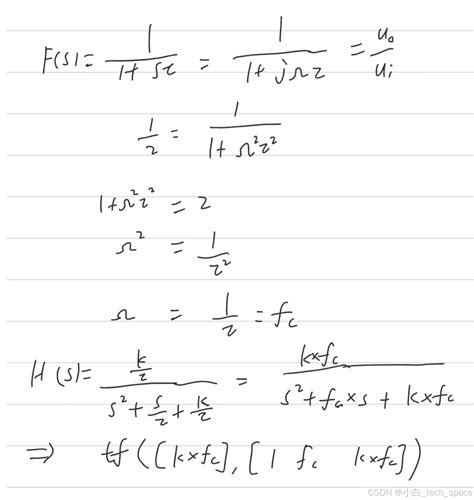 F(s) = 1/(1+sτ) = 1/(1+jΩτ) = u₀/uᵢ
1/2 = 1/(1+Ω²τ²)
1+Ω²τ² = 2
Ω² = 1/τ²
Ω = 1/τ = f꜀
H(s) = (k/τ)/(s²+s/τ+k/τ) = k×f꜀/(s²+f꜀×s+k×f꜀)
⇒ tf([k×f꜀],[1 f꜀ k×f꜀])
CSDN @小白_tech_space